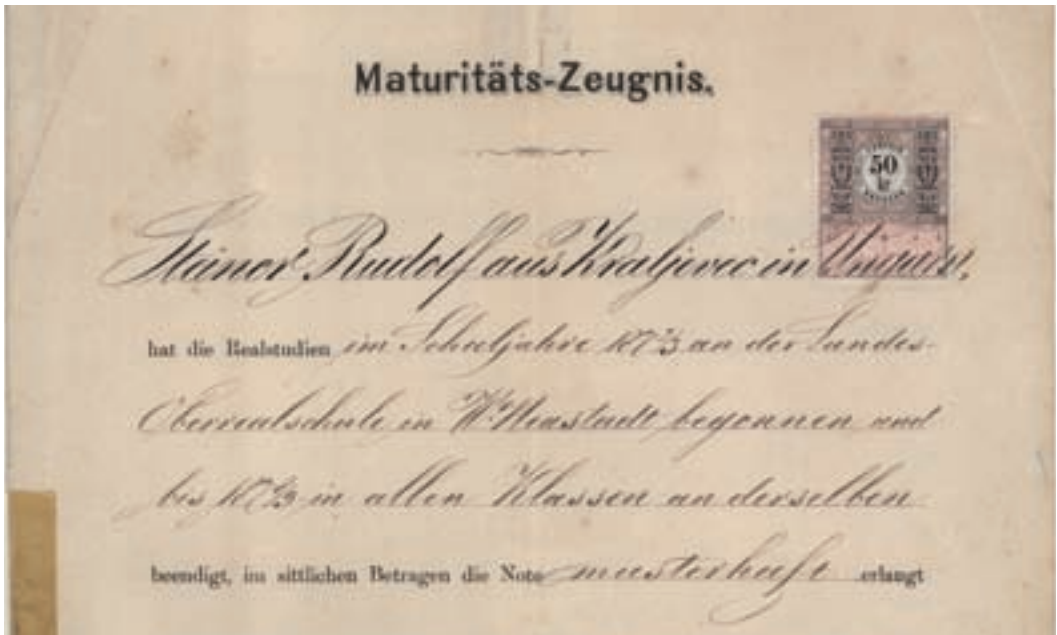 Maturitäts-Zeugnis.
50
kr
Steiner Rudolf aus Kraljevec in Ungarn,
hat die Realstudien im Schuljahre 187⅔ an der Landes-
Oberrealschule in W. Neustadt begonnen und
bis 187 in allen Klassen an derselben
beendigt, im sittlichen Betragen die Note musterhaft erlangt